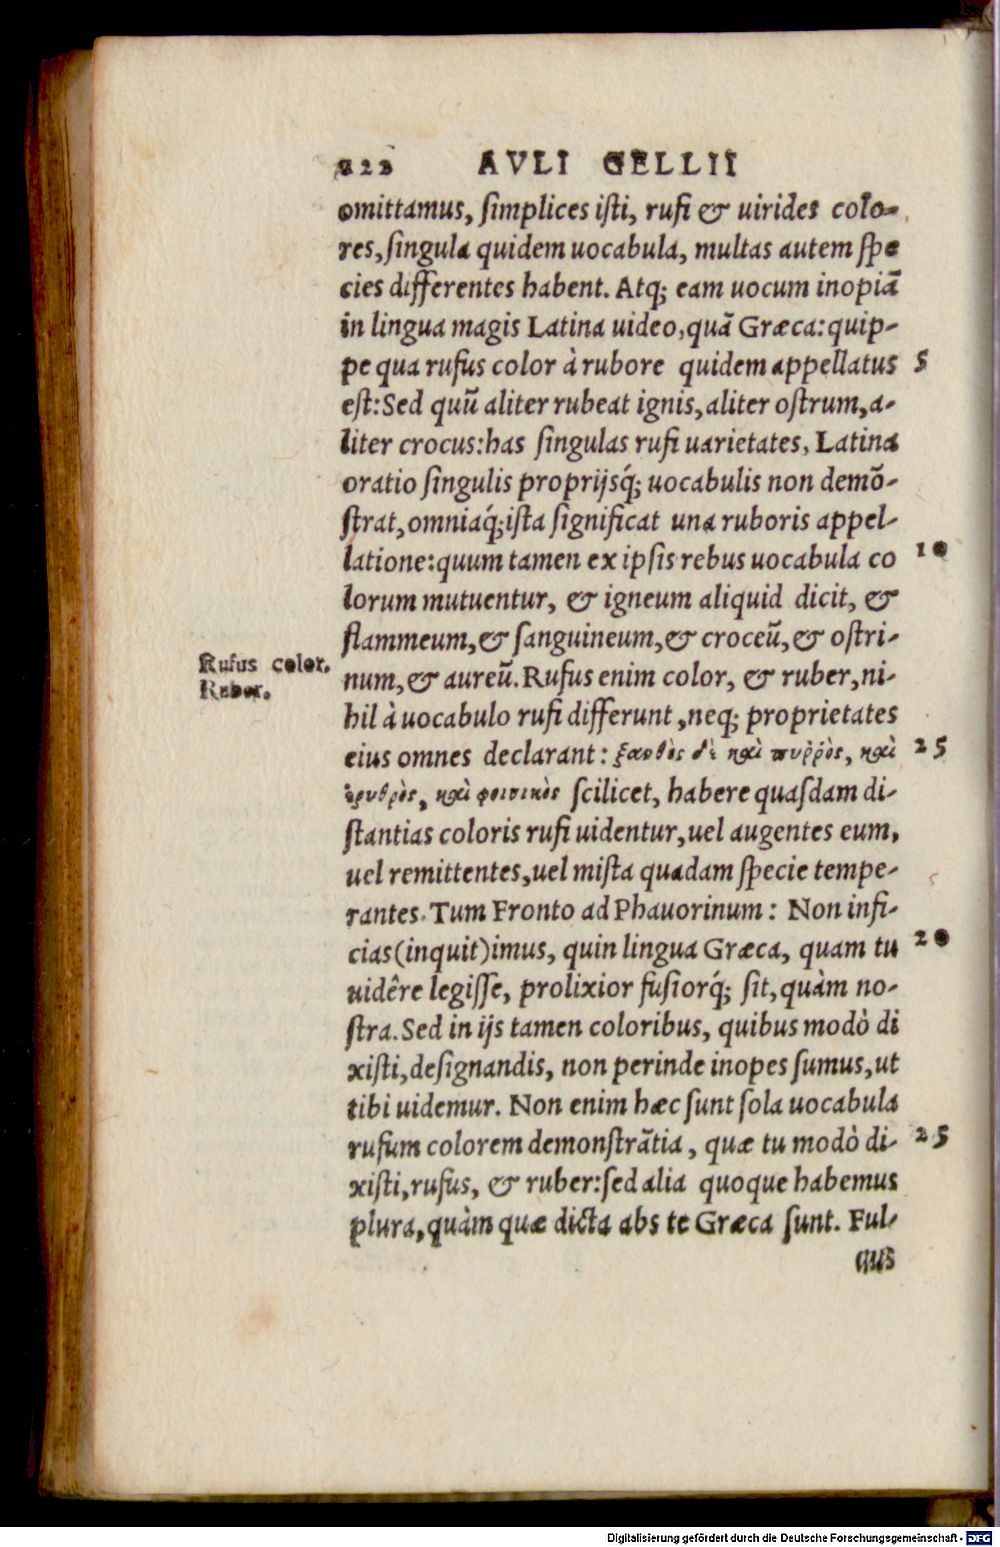 222 AVLI GELLII
omittamus, ſimplices iſti, rufi & uirides colo-
res, ſingula quidem uocabula, multas autem ſpe
cies differentes habent. Atq; eam uocum inopiã
in lingua magis Latina uideo, quã Græca: quip-
pe qua rufus color à rubore quidem appellatus 5
eſt: Sed quũ aliter rubeat ignis, aliter oſtrum, a-
liter crocus: has ſingulas rufi uarietates, Latina
oratio ſingulis proprijsq́; uocabulis non demõ-
ſtrat, omniaq́; iſta ſignificat una ruboris appel-
latione: quum tamen ex ipſis rebus uocabula co 10
lorum mutuentur, & igneum aliquid dicit, &
flammeum, & ſanguineum, & croceũ, & oſtri-
Rufus color.
Ruber.
num, & aureũ. Rufus enim color, & ruber, ni-
hil à uocabulo rufi differunt, neq; proprietates
eius omnes declarant: ξανθὸς δὲ καὶ πυῤῥὸς, καὶ 25
ἐρυθρὸς, καὶ φοινικὸς ſcilicet, habere quaſdam di-
ſtantias coloris rufi uidentur, uel augentes eum,
uel remittentes, uel miſta quadam ſpecie tempe-
rantes. Tum Fronto ad Phauorinum: Non infi-
cias (inquit) imus, quin lingua Græca, quam tu 20
uidêre legiſſe, prolixior fuſiorq́; ſit, quàm no-
ſtra. Sed in ijs tamen coloribus, quibus modò di
xiſti, deſignandis, non perinde inopes ſumus, ut
tibi uidemur. Non enim hæc ſunt ſola uocabula
rufum colorem demonſtrãtia, quæ tu modò di- 25
xiſti, rufus, & ruber: ſed alia quoque habemus
plura, quàm quæ dicta abs te Græca ſunt. Ful-
uus
Digitalisierung gefördert durch die Deutsche Forschungsgemeinschaft - DFG